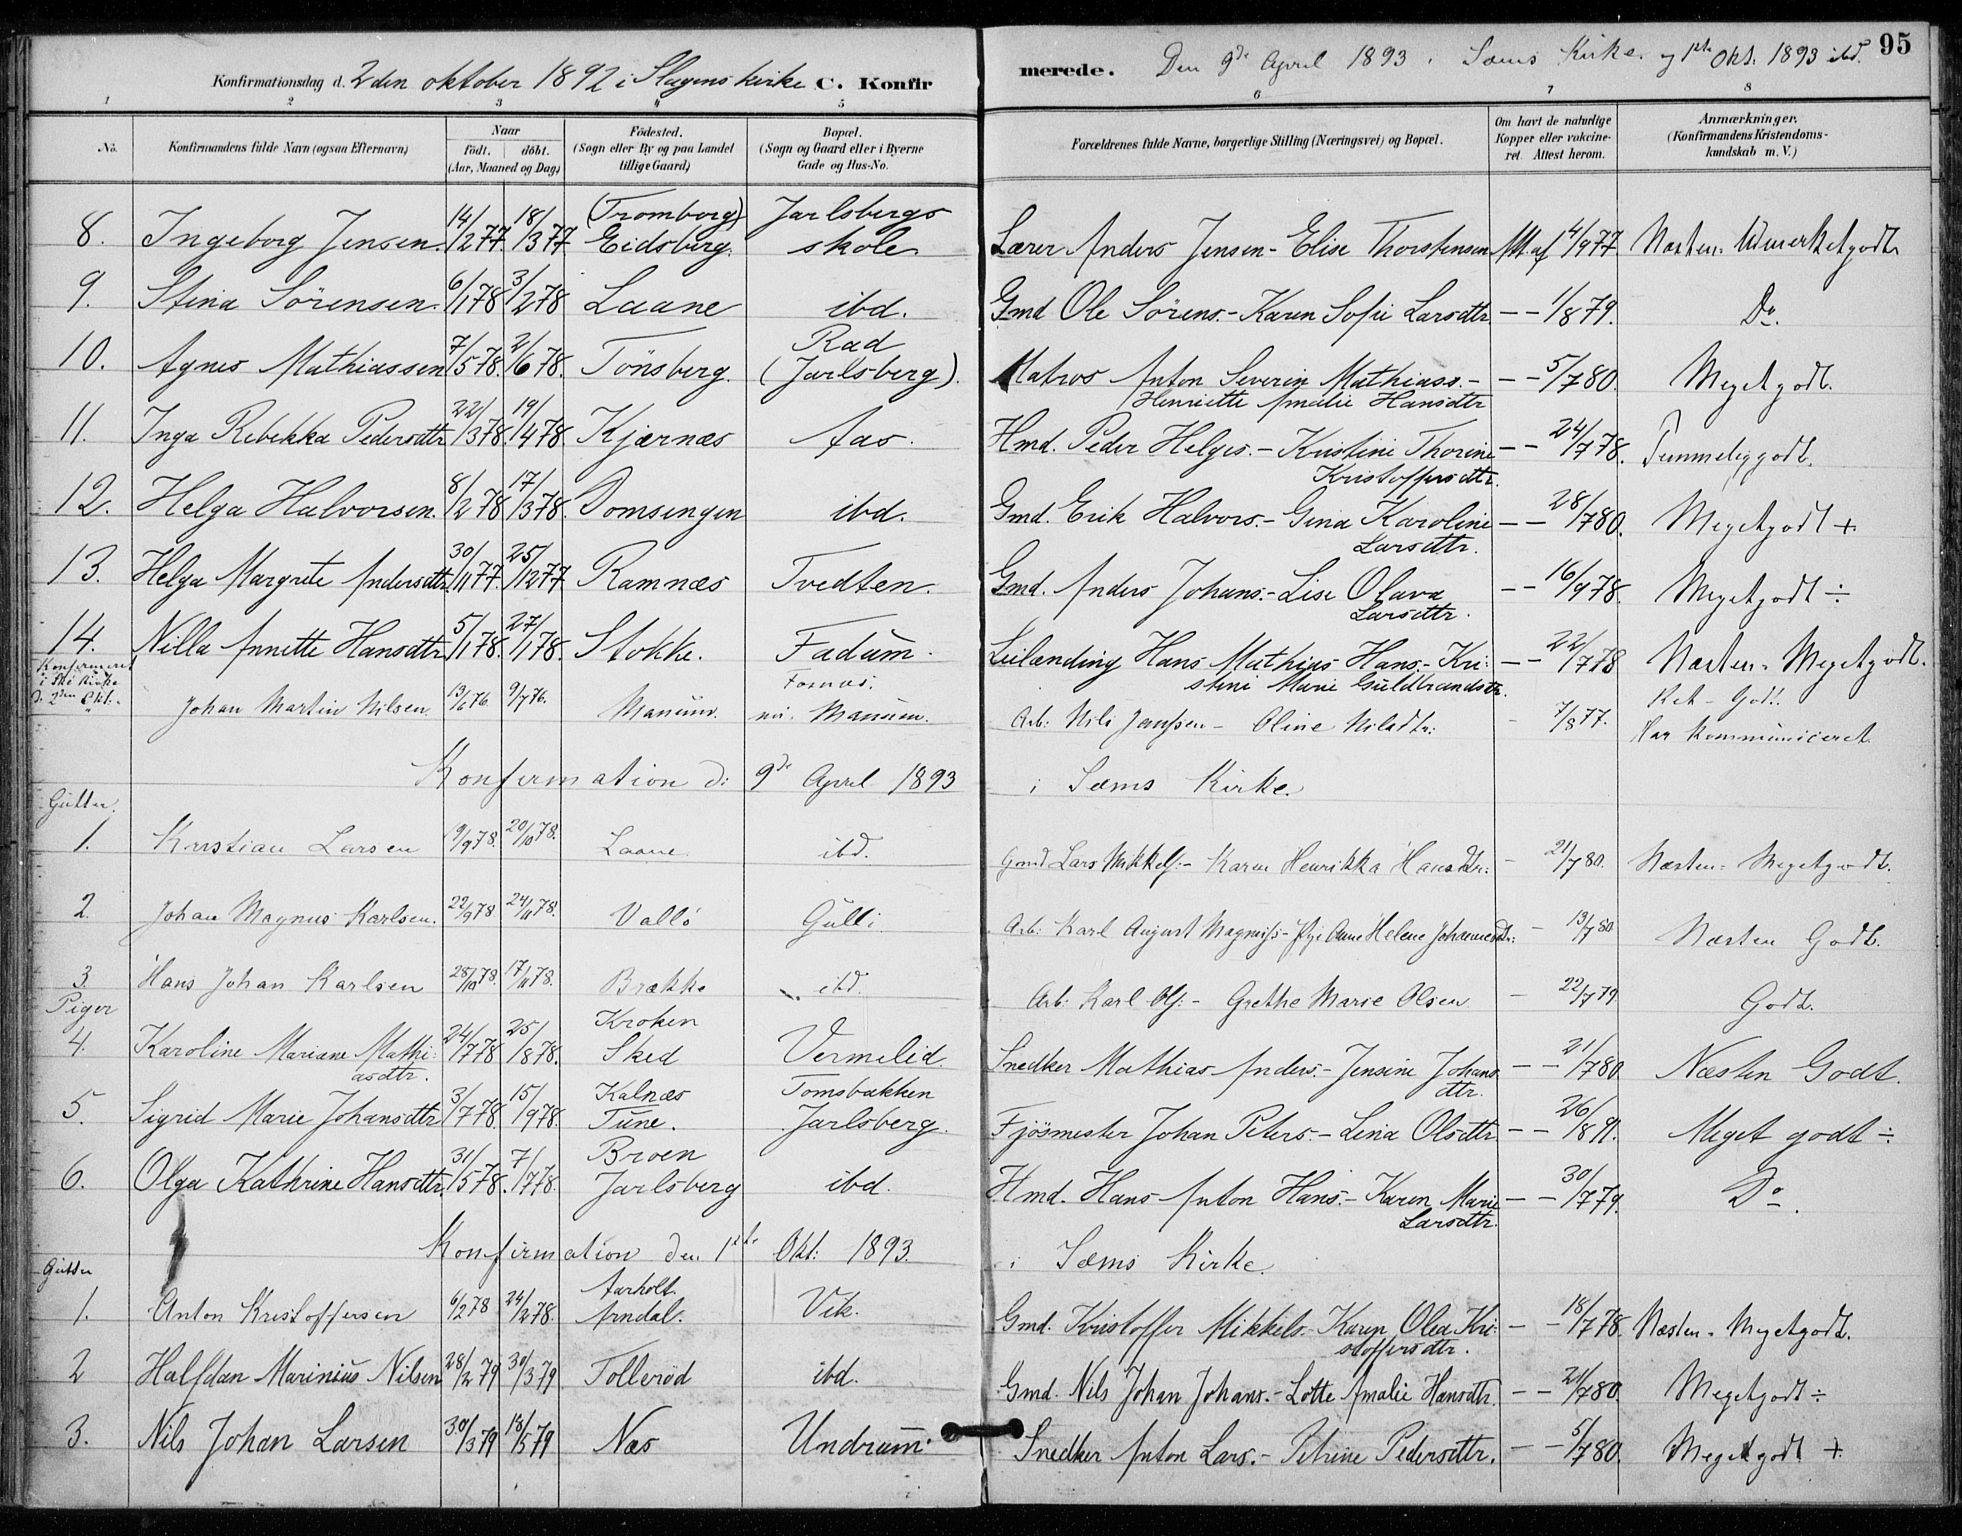 95
Konfirmationsdag d. 2den oktober 1892 i Slagens kirke C. Konfirmerede. Den 9de April 1893 i Sæms Kirke og 1ste Okt. 1893 ibd.
1 2 3 4 5 6 7 8
No. Konfirmandens fulde Navn (ogsaa Efternavn) Naar födt. döbt. (Aar, Maaned og Dag) Födested. (Sogn eller By og paa Landet tillige Gaard) Bopæl. (Sogn og Gaard eller i Byerne Gade og Hus-No. Forældrenes fulde Navne, borgerlige Stilling (Næringsvei) og Bopæl. Om havt de naturlige Kopper eller vakcineret. Attest herom. Anmærkninger. (Konfirmandens Kristendomskundskab m. V.)
8. Ingeborg Jensen. 14/2 77. 18/3 77 (Tromborg) Eidsberg. Jarlsbergs skole Lærer Anders Jensen - Elise Thorstensen Att. af 14/9 77 Næsten Udmerketgodt
9. Stina Sörensen. 6/1 78 3/2 78 Laane ibd. Gmd Ole Sörens. - Karen Sofie Larsdtr. - - 1/8 79. Do.
10. Agnes Mathiassen 7/5 78. 2/6 78. Tönsberg. Rad (Jarlsberg). Matros Anton Severin Mathiass. - - - 5/7 80. Meget godt.
Henriette Amalie Hansdtr
11. Inga Rebekka Pedersdtr 22/3 78. 19/4 78. Kjærnæs Aas. Hmd. Peder Helges. - Kristine Thorine - - 24/7 78. Temmelig godt.
Kristoffersdtr.
12. Helga Halvorsen. 8/2 78 17/3 78. Domsengen ibd. Gmd. Erik Halvors. - Gina Karoline - - 28/7 80. Megetgodt +
Larsdtr.
13. Helga Margrete Andersdtr. 30/11 77. 25/12 77 Ramnæs Tvedten. Gmd. Anders Johans. - Lise Olava - - 16/9 78. Megetgodt ÷
Larsdtr.
14. Nilla Annette Hansdtr. 5/1 78. 27/1 78. Stokke. Fadum. Leilænding Hans Mathias Hans. - Kri- - - 22/7 78 Næsten - Megetgodt.
stine Marie Guldbrandsdtr.
Konfirmeret i Kirke d. 2den Okt. Johan Martin Nilsen. 13/6 76. 9/7 76. Manum. Manum. Arb: Nils Jansen - Oline Nilsdtr: - 7/8 77. - Godt.
Har kommuniceret
Konfirmation d: 9de April 1893 i Sæms Kirke.
Gutter.
1. Kristian Larsen 19/9 78. 20/10 78. Laane ibd. Gmd Lars Mikkels: - Karen Henrikka Hansdtr: - 21/7 80. Næsten - Megetgodt.
2. Johan Magnus Karlsen. 22/9 78 24/11 78. Vallö Gulli Arb: Karl August Magniss - Anne Helene Johannesdtr: - 13/7 80 Næsten Godt.
3. Hans Johan Karlsen 28/10 78. 17/11 78. Brække ibd. Arb: Karl Ols: - Grethe Marie Olsen - 22/7 79 Godt.
Piger
4. Karoline Mariane Mathi- 24/7 78 25/8 78. Kroken Sked Vermelid. Snedker Mathias Anders. - Jensine Johans - - 21/7 80. Næsten Godt.
asdtr. dtr.
5. Sigrid Marie Johansdtr 3/7 78. 15/9 78. Kalnæs Tune. Tomsbakken Jarlsberg. Fjösmester Johan Peters. - Lina Olsdtr - - 26/8 91. Meget godt ÷
6. Olga Kathrine Hansdtr. 31/5 78. 7/7 78. Broen Jarlsberg ibd. Hmd. Hans Anton Hans. - Karen Marie - - 30/7 79. Do.
Larsdtr.
Konfirmation den 1ste Okt: 1893. i Sæms Kirke.
Gutter
1. Anton Kristoffersen 6/2 78 24/2 78. Aarholt. Arndal. Vik. Gmd. Kristoffer Mikkels. - Karen Olea Kri- - - 18/7 78. Næsten - Megetgodt.
stoffersdtr.
2 Halfdan Marinius Nilsen 28/2 79 30/3 79 Tolleröd ibd. Gmd. Nils Johan Johans. - Lotte Amalie Hansdtr. - - 21/7 80. Megetgodt ÷
3. Nils Johan Larsen 30/3 79 18/5 79 Næs Undrum. Snedker Anton Lars. - Petrine Pedersdtr. - - 5/7 80. Megetgodt +